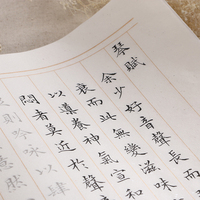 琴賦
余少好音聲長而
衰而此無變滋味
以導養神氣宣和
悶者莫近於聲
則吟詠以肆
然